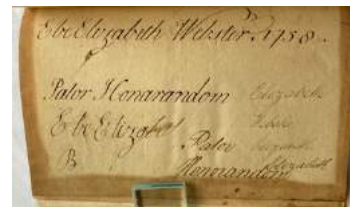 Ebe Elizabith Webster 1758
Pator Honarandom Elizabeth
Ebe Elizabet
Pator Elizabeth
B Honnarandom